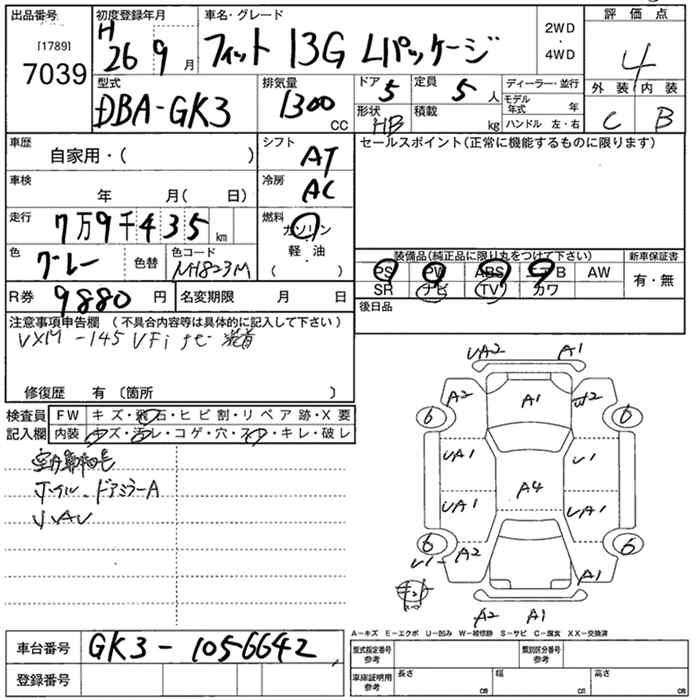 出品番号
[1789]
7039
初度登録年月
H
26 9月
車名・グレード
フィット 13G Lパッケージ
2WD
・
4WD
評価点
4
外装 内装
C B
型式
DBA-GK3
排気量
1300
CC
ドア
5
定員
5人
形状
HB
積載
kg
ディーラー・並行
モデル年式 年
ハンドル 左・右
車歴
自家用・( )
シフト
AT
セールスポイント(正常に機能するものに限ります)
車検
年 月( 日)
冷房
AC
走行
7万9千435km
燃料
ガソリン
・
軽・油
( )
色
グレー
色替
色コード
NH823M
装備品(純正品に限り丸をつけて下さい)
新車保証書
PS PW ABS エアB AW
SR ナビ TV カワ
有・無
R券
9880円
名変期限 月 日
後日品
注意事項申告欄 (不具合内容等は具体的に記入して下さい)
VXM-145VFi ナビ 装着
修復歴 有 〔箇所 〕
検査員
記入欄
FW キズ・飛石・ヒビ割・リペア跡・X要
内装 キズ・汚レ・コゲ・穴・スリ・キレ・破レ
ホイル ドアミラーA
UA2 A1
A2 A1 W2
6 6
UA1 U1
A4
UA1 UA1
6 6
U1 A2
A1
A2 A1
A-キズ E-エクボ U-凹み W-補修跡 S-サビ C-腐食 XX-交換済
車台番号
GK3-1056642
登録番号
型式指定番号
参考
類別区分番号
参考
車庫証明用
参考
長さ cm
幅 cm
高さ cm